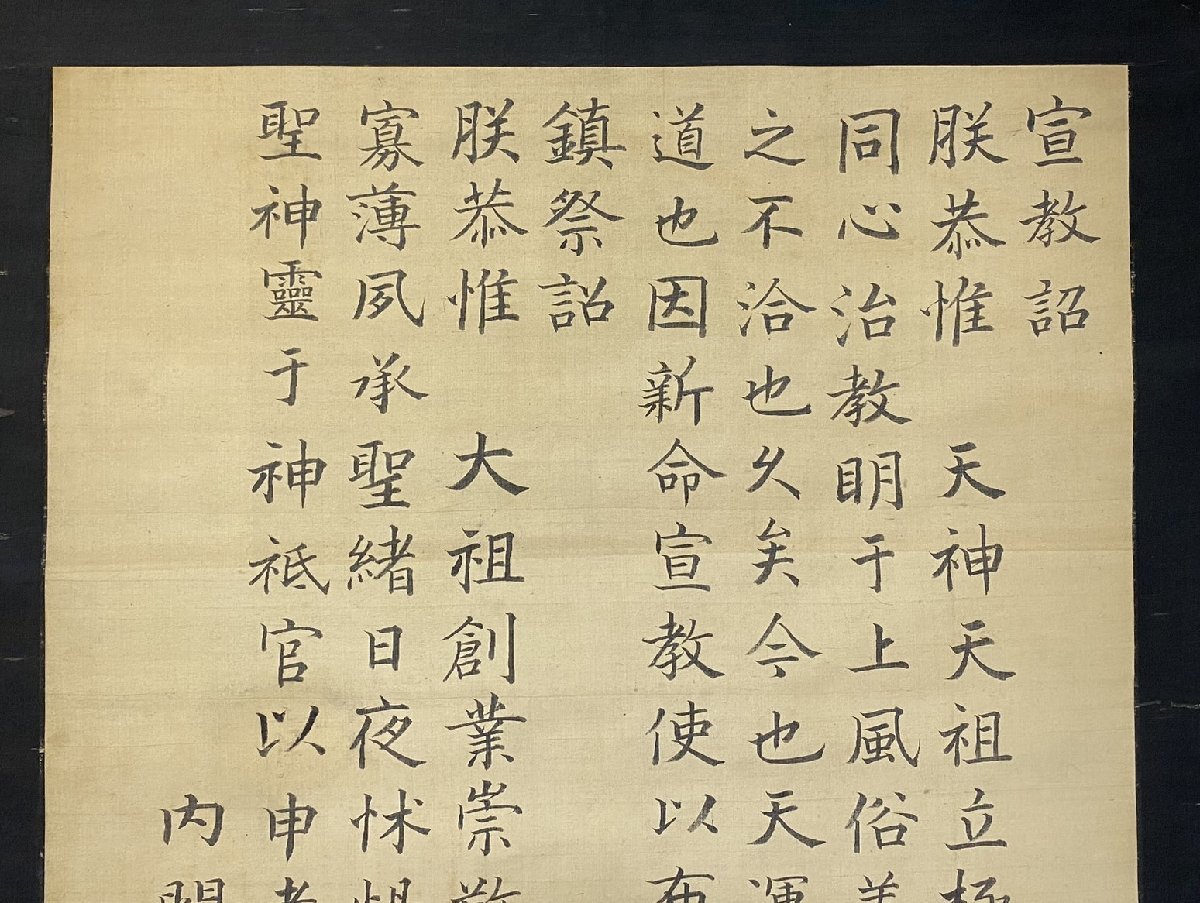 宣教詔
朕恭惟 天神天祖立極
同心治教明于上風俗美
之不洽也久矣今也天運
道也因新命宣教使以布
鎮祭詔
朕恭惟 大祖創業崇敬
寡薄夙承聖緒日夜怵惕
聖神靈于神祇官以申孝
内閣